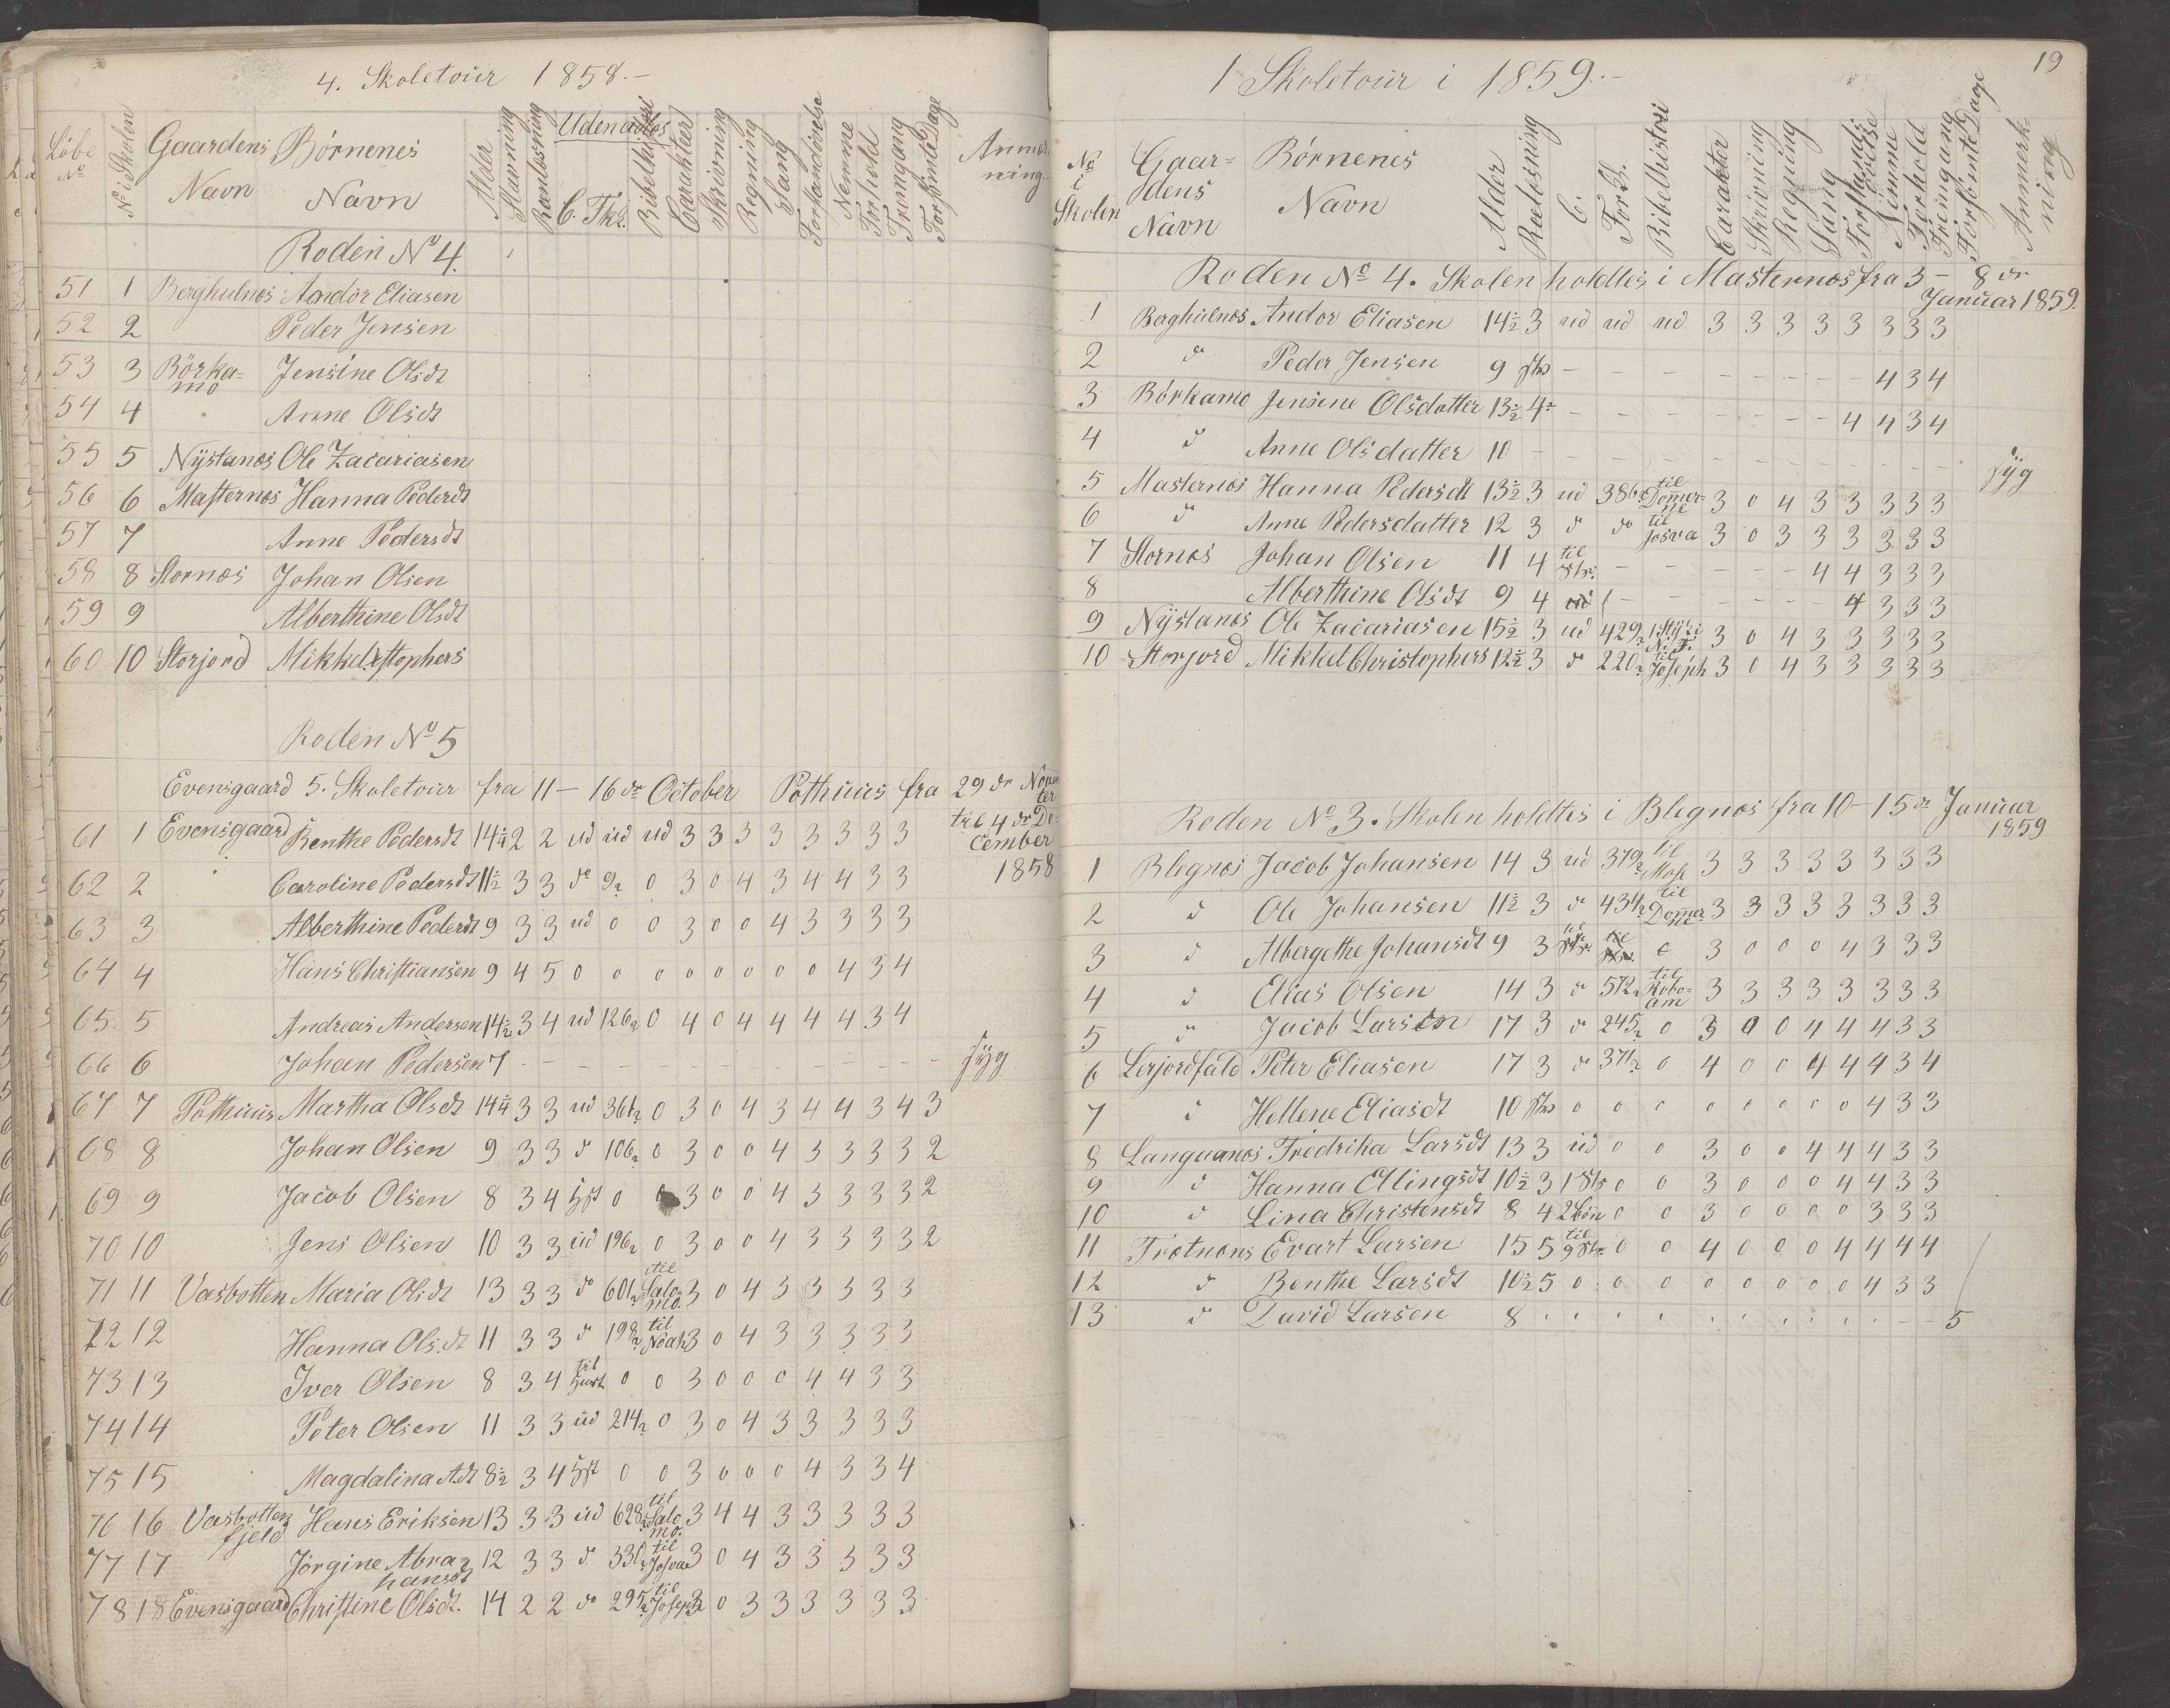 4. Skoletour 1858.-
Løbe No | No i Skolen | Gaardens Navn | Børnenes Navn | Alder | Stavning | Ranlæsning | Udenadlæs | C. | Fkl. | Bibelhistori | Carakter | Skrivning | Regning | Sang | Forstandøvelse | Nemme | Forhold | Fremgang | Forsømte Dage | Anmerkning
Roden No 4.
51 1 Berghulnes Andor Eliasen
52 2 Peder Jensen
53 3 Börkamo Jensine Olsdt
54 4 Anne Olsdt
55 5 Nÿstanes Ole Zacariasen
56 6 Masternes Hanna Pedersdt
57 7 Anne Pedersdt
58 8 Stornes Johan Olsen
59 9 Alberthine Olsdt
60 10 Storjord Mikkel Xstophers
Roden No 5
Evensgaard 5. Skoletour fra 11-16 de October Pothuus fra 29 de November til 4 de December 1858
61 1 Evensgaard Benthe Pedersdt 14 1/4 2 2 ud ud ud 3 3 3 3 3 3 3 3
62 2 Caroline Pedersdt 11 1/2 3 3 do 9 0 3 0 4 3 4 4 3 3
63 3 Alberthine Pedersdt 9 3 3 ud 0 0 3 0 0 4 3 3 3 3
64 4 Hans Christiansen 9 4 5 0 0 0 0 0 0 0 0 4 3 4
65 5 Andreas Andersen 14 1/2 3 4 ud 126 0 4 0 4 4 4 4 3 4
66 6 Johan Pedersen 7 - - - - - - - - - - - sÿg
67 7 Pothuus Martha Olsdt 14 1/4 3 3 ud 361 0 3 0 4 3 4 4 3 4 3
68 8 Johan Olsen 9 3 3 do 106 0 3 0 0 4 3 3 3 3 2
69 9 Jacob Olsen 8 3 4 0 3 0 0 4 3 3 3 3 2
70 10 Jens Olsen 10 3 3 ud 196 0 3 0 0 4 3 3 3 3 2
71 11 Vasbotten Maria Olsdt 13 3 3 do 601 til Salomo. 3 0 4 3 3 3 3 3
72 12 Hanna Olsdt 11 3 3 do 198 til Noah 3 0 4 3 3 3 3 3
73 13 Iver Olsen 8 3 4 til 0 0 3 0 0 0 4 4 3 3
74 14 Peter Olsen 11 3 3 ud 214 0 3 0 4 3 3 3 3 3
75 15 Magdalina Adt 8 1/2 3 4 0 0 3 0 0 0 4 3 3 4
76 16 Vasbottenfjeld Hans Eriksen 13 3 3 ud 628 til Salomo. 3 4 4 3 3 3 3 3
77 17 Jørgine Abrahansdt 12 3 3 do 330 til Josva 3 0 4 3 3 3 3 3
78 18 Evensgaard Christine Olsdt. 14 2 2 do 295 til Joseph 3 0 3 3 3 3 3 3
19
1 Skoletour i 1859.-
No i Skolen | Gaardens Navn | Børnenes Navn | Alder | Rælæsning | C. | Forkl. | Bibelhistori | Carakter | Skrivning | Regning | Sang | Forstandsøvelse | Nemme | Forhold | Fremgang | Forsømte Dage | Anmerkning
Roden No 4. Skolen holdtes i Masternes fra 3-8 de Januar 1859.
1 Berghulnes Andor Eliasen 14 1/2 3 ud ud ud 3 3 3 3 3 3 3 3
2 do Peder Jensen 9 - - - - - - - - 4 3 4
3 Börkamo Jensine Olsdatter 13 1/2 4 - - - - - - - 4 4 3 4
4 do Anne Olsdatter 10 - - - - - - - - - - - sÿg
5 Masternes Hanna Pedersdt 13 1/2 3 ud 386 til Domerne 3 0 4 3 3 3 3 3
6 do Anne Pedersdatter 12 3 do do til Josva 3 0 3 3 3 3 3 3
7 Stornes Johan Olsen 11 4 til - - - - - 4 4 3 3 3
8 Alberthine Olsdt 9 4 - - - - - - 4 3 3 3
9 Nÿstanes Ole Zacariasen 15 1/2 3 ud 429 1 Stÿk i N. T. 3 0 4 3 3 3 3 3
10 Storjord Mikkel Christophers 12 1/2 3 do 220 til Joseph 3 0 4 3 3 3 3 3
Roden No 3. Skolen holdtes i Blegnes fra 10-15 de Januar 1859
1 Blegnes Jacob Johansen 14 3 ud 379 til Mose 3 3 3 3 3 3 3 3
2 do Ole Johansen 11 1/2 3 do 434 til Domerne 3 3 3 3 3 3 3 3
3 do Albergethe Johansdt 9 3 3 0 0 0 4 3 3 3
4 do Elias Olsen 14 3 do 572 til Roboam 3 3 3 3 3 3 3 3
5 do Jacob Larsen 17 3 do 245 0 3 0 0 4 4 4 3 3
6 Lerjordfald Peter Eliasen 17 3 do 371 0 4 0 0 4 4 4 3 4
7 do Hellene Eliasdt 10 0 0 0 0 0 0 0 0 4 3 3
8 Languanes Fredrika Larsdt 13 3 ud 0 0 3 0 0 4 4 4 3 3
9 do Hanna Ellingsdt 10 1/2 3 1 Stk 0 0 3 0 0 0 4 4 3 3
10 do Lina Christensdt 8 4 2 Bön 0 0 3 0 0 0 0 3 3 3
11 Trotnæs Evart Larsen 15 5 til 0 0 4 0 0 0 4 4 4 4
12 do Benthe Larsdt 10 1/2 5 0 0 0 0 0 0 0 0 4 3 3
13 do David Larsen 8 - - - - - - - - - - - 5